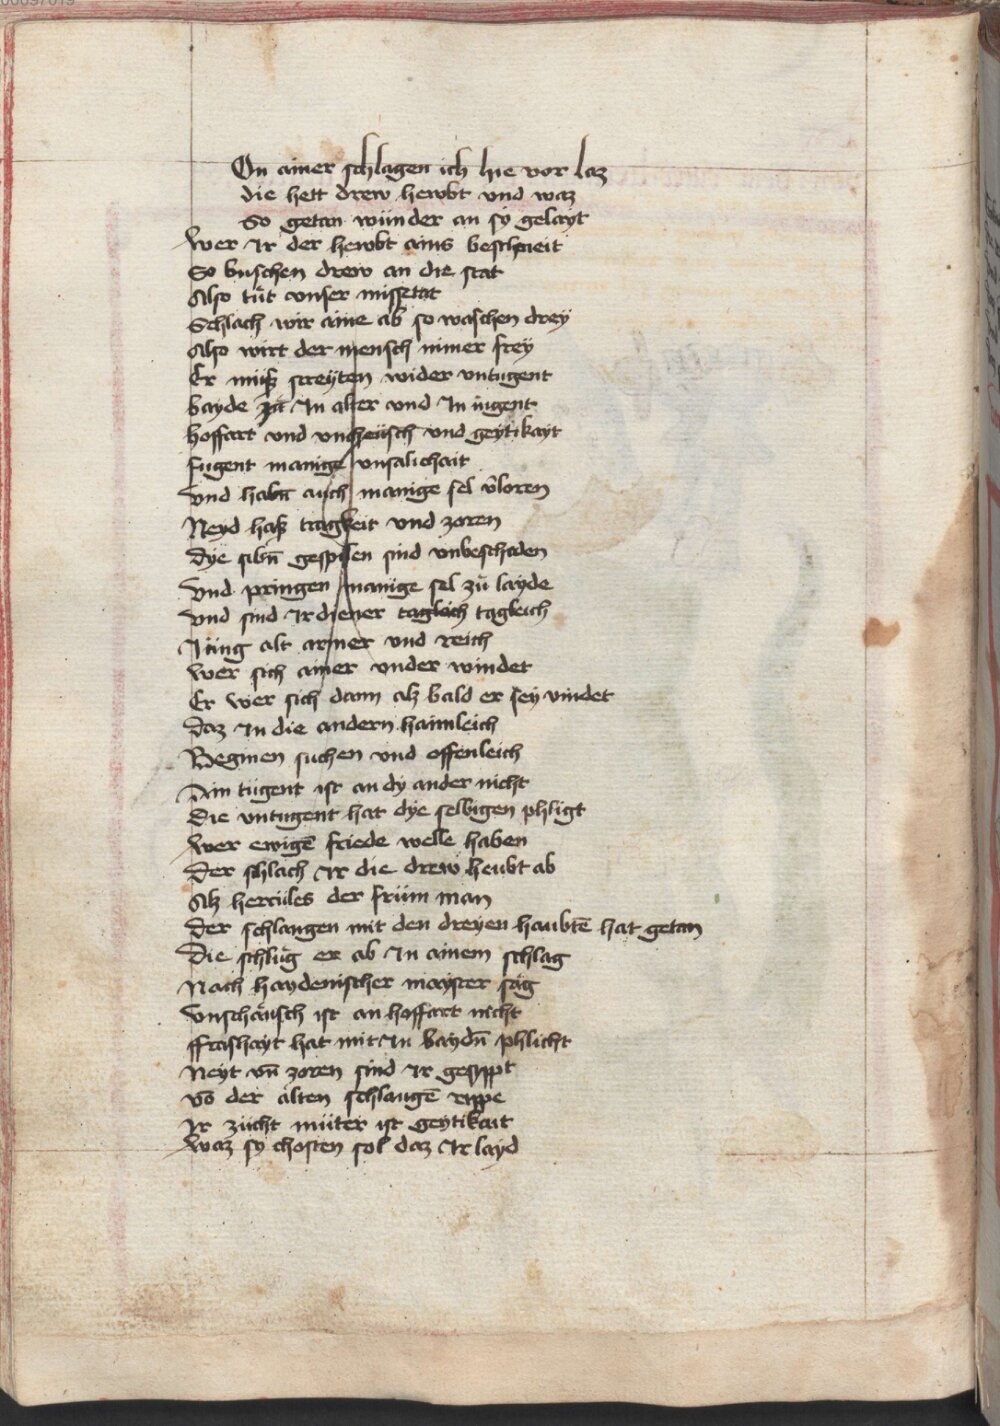 On ainer schlagen ich hie vor laz
die hett drew hewbt und waz
So getan wunder an sy gelayt
Wer Ir der hewbt ains beschneit
So buschen drew an die stat
Also tut vnser missetat
Schlach wir aine ab so waschen drey
Also wirt der mensch nimer frey
Er muß streyten wider vntugent
bayde zu In alter vnd In iugent
hoffart vnd vncheusch vnd geytikayt
fugent manige vnsalichait
Vnd habn̄ auch manige sel v̄loren
Neyd haß tragkeit vnd zoren
Dye sibn̄ gespilen sind vnbeschaden
Vnd pringen manige sel zu layde
Vnd sind Ir diener tagleich tagleich
Jung alt armer vnd reich
Wer sich ainer vnder windet
Er wer sich dann alz bald er sey vindet
Daz In die andern haimleich
Beginen suchen vnd offenleich
Ain tugent ist an dy ander nicht
Die vntugent hat dye selbigen phligt
Wer ewigē friede welle haben
Der schlach Ir die drew heubt ab
Alz hercules der frum man
Der schlangen mit den dreyen haubtē hat getan
Die schlug er ab In ainem schlag
Nach haydenischer mayster sag
Vnschausch ist an hoffart nicht
ffrashayt hat mit In baydn̄ phlicht
Neyt vn̄ zoren sind Ir gesyppt
vō der alten schlangē rippe
Ir zucht muter ist geytikait
Waz sy chosten sol daz Ir layd